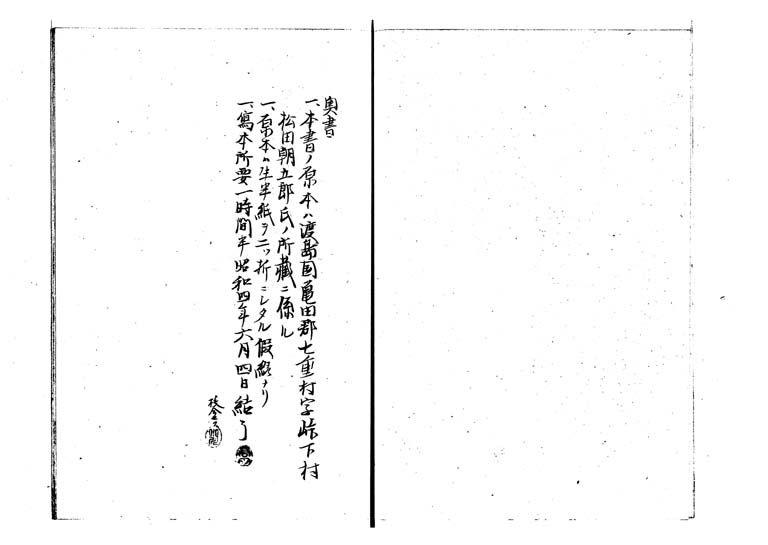 奥書
一、本書ノ原本ハ渡島国亀田郡七重村字峠下村
松田朝五郎氏ノ所蔵ニ係ル
一、原本ハ生半紙ヲ二ッ折ニシタル假綴ナリ
一、寫本所要一時間半昭和四年六月四日結了